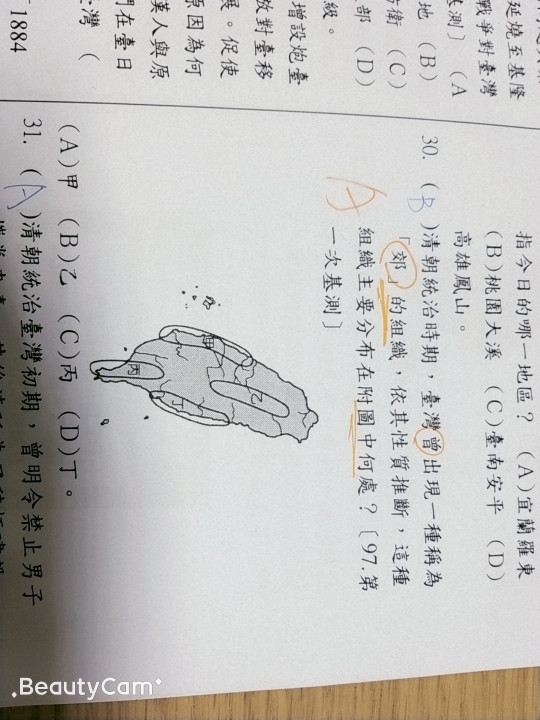 指今日的哪一地區？ (A)宜蘭羅東
(B)桃園大溪 (C)臺南安平 (D)
高雄鳳山。
30. (B)清朝統治時期，臺灣曾出現一種稱為
「郊」的組織，依其性質推斷，這種
組織主要分布在附圖中何處？〔97.第
一次基測〕
A
甲
乙
丙
丁
(A)甲 (B)乙 (C)丙 (D)丁。
31. (A)清朝統治臺灣初期，曾明令禁止男子
延燒至基隆
戰爭對臺灣
基測〕 (A
地 (B)
防衛 (C)
部 (D)
級。
增設炮臺
放對臺移
展。促使
原因為何
漢人與原
們在臺日
臺灣 (
1884
.BeautyCam